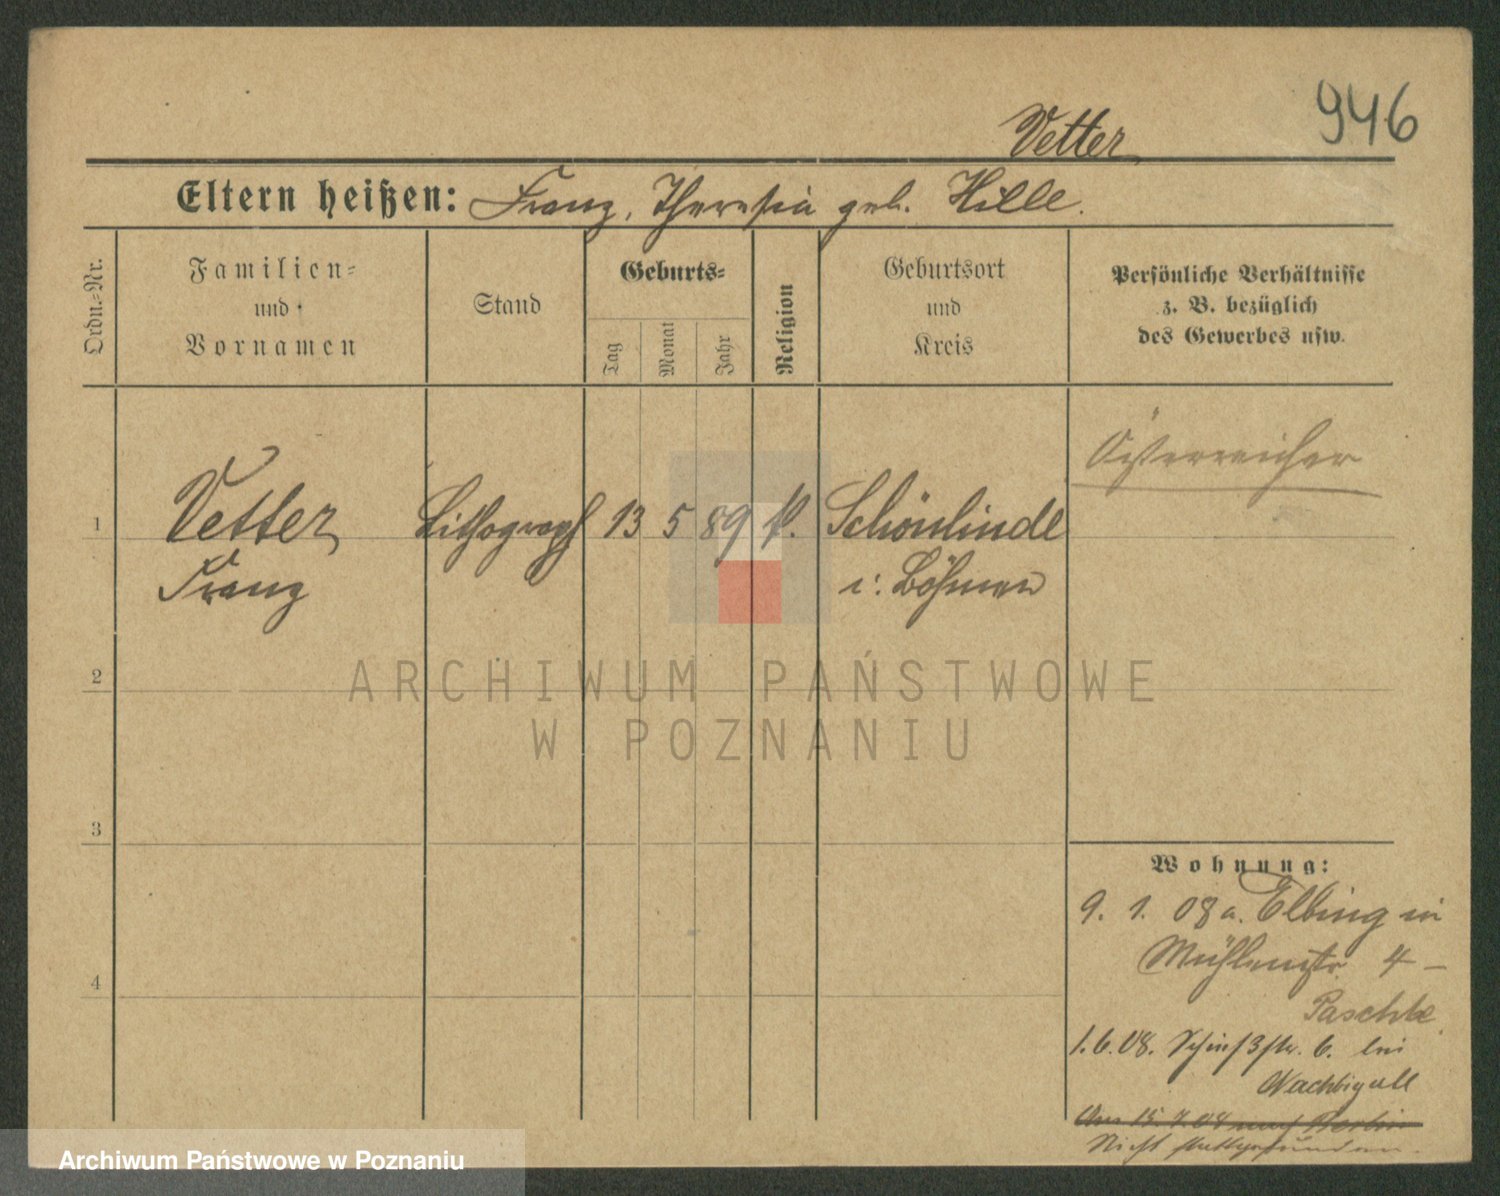 946
Vetter
Eltern heißen: Franz, Theresia geb. Hille.
Ordn.-Nr.
Familien-
und
Vornamen
Stand
Geburts-
Tag
Monat
Jahr
Religion
Geburtsort
und
Kreis
Persönliche Verhältnisse
z. B. bezüglich
des Gewerbes usw.
Österreicher
1
Vetter
Franz
Lithograph
13
5
89
k.
Schönlinde
i. Böhmen
2
ARCHIWUM PAŃSTWOWE
W POZNANIU
3
Wohnung:
9. 1. 08 a. Elbing in
Mühlenstr. 4 –
Paschke
1.6.08. str. 6. bei
Nachtigall
Am 15.7.08 nach Berlin
Nicht stattgefunden.
4
Archiwum Państwowe w Poznaniu